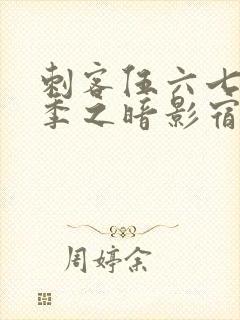 刺客伍六七
季之暗影宿
周婷余